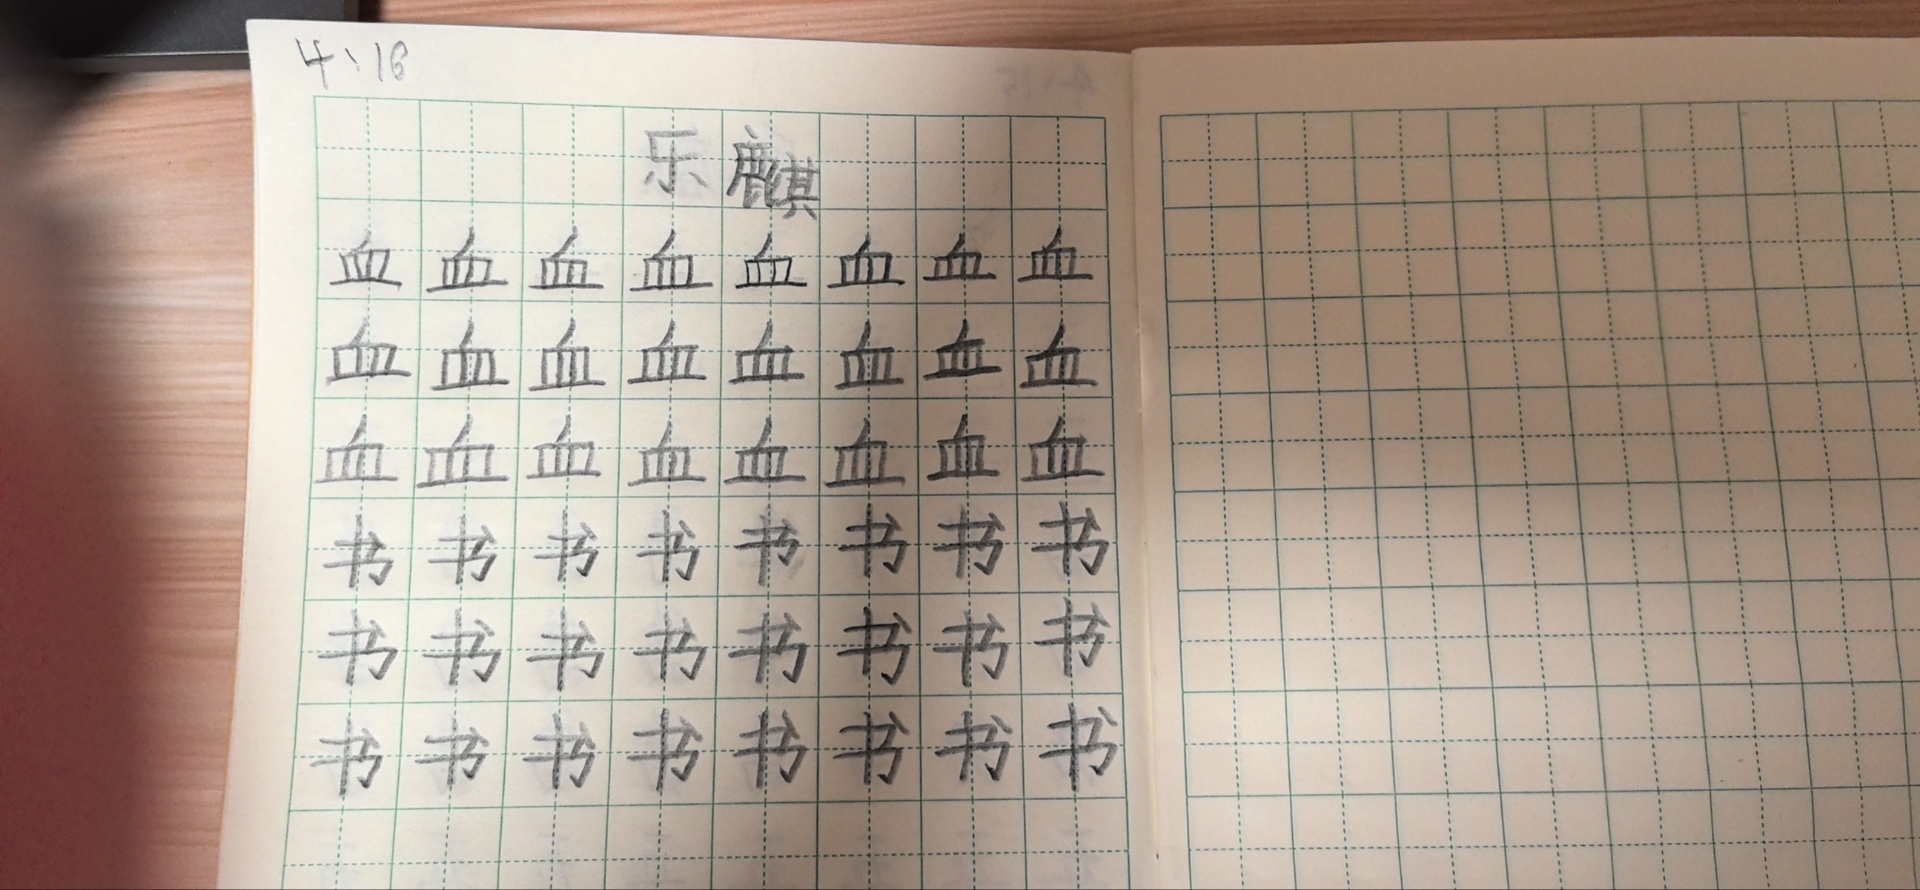 4、16
乐麒
血血血血血血血血
血血血血血血血血
血血血血血血血血
书书书书书书书书
书书书书书书书书
书书书书书书书书